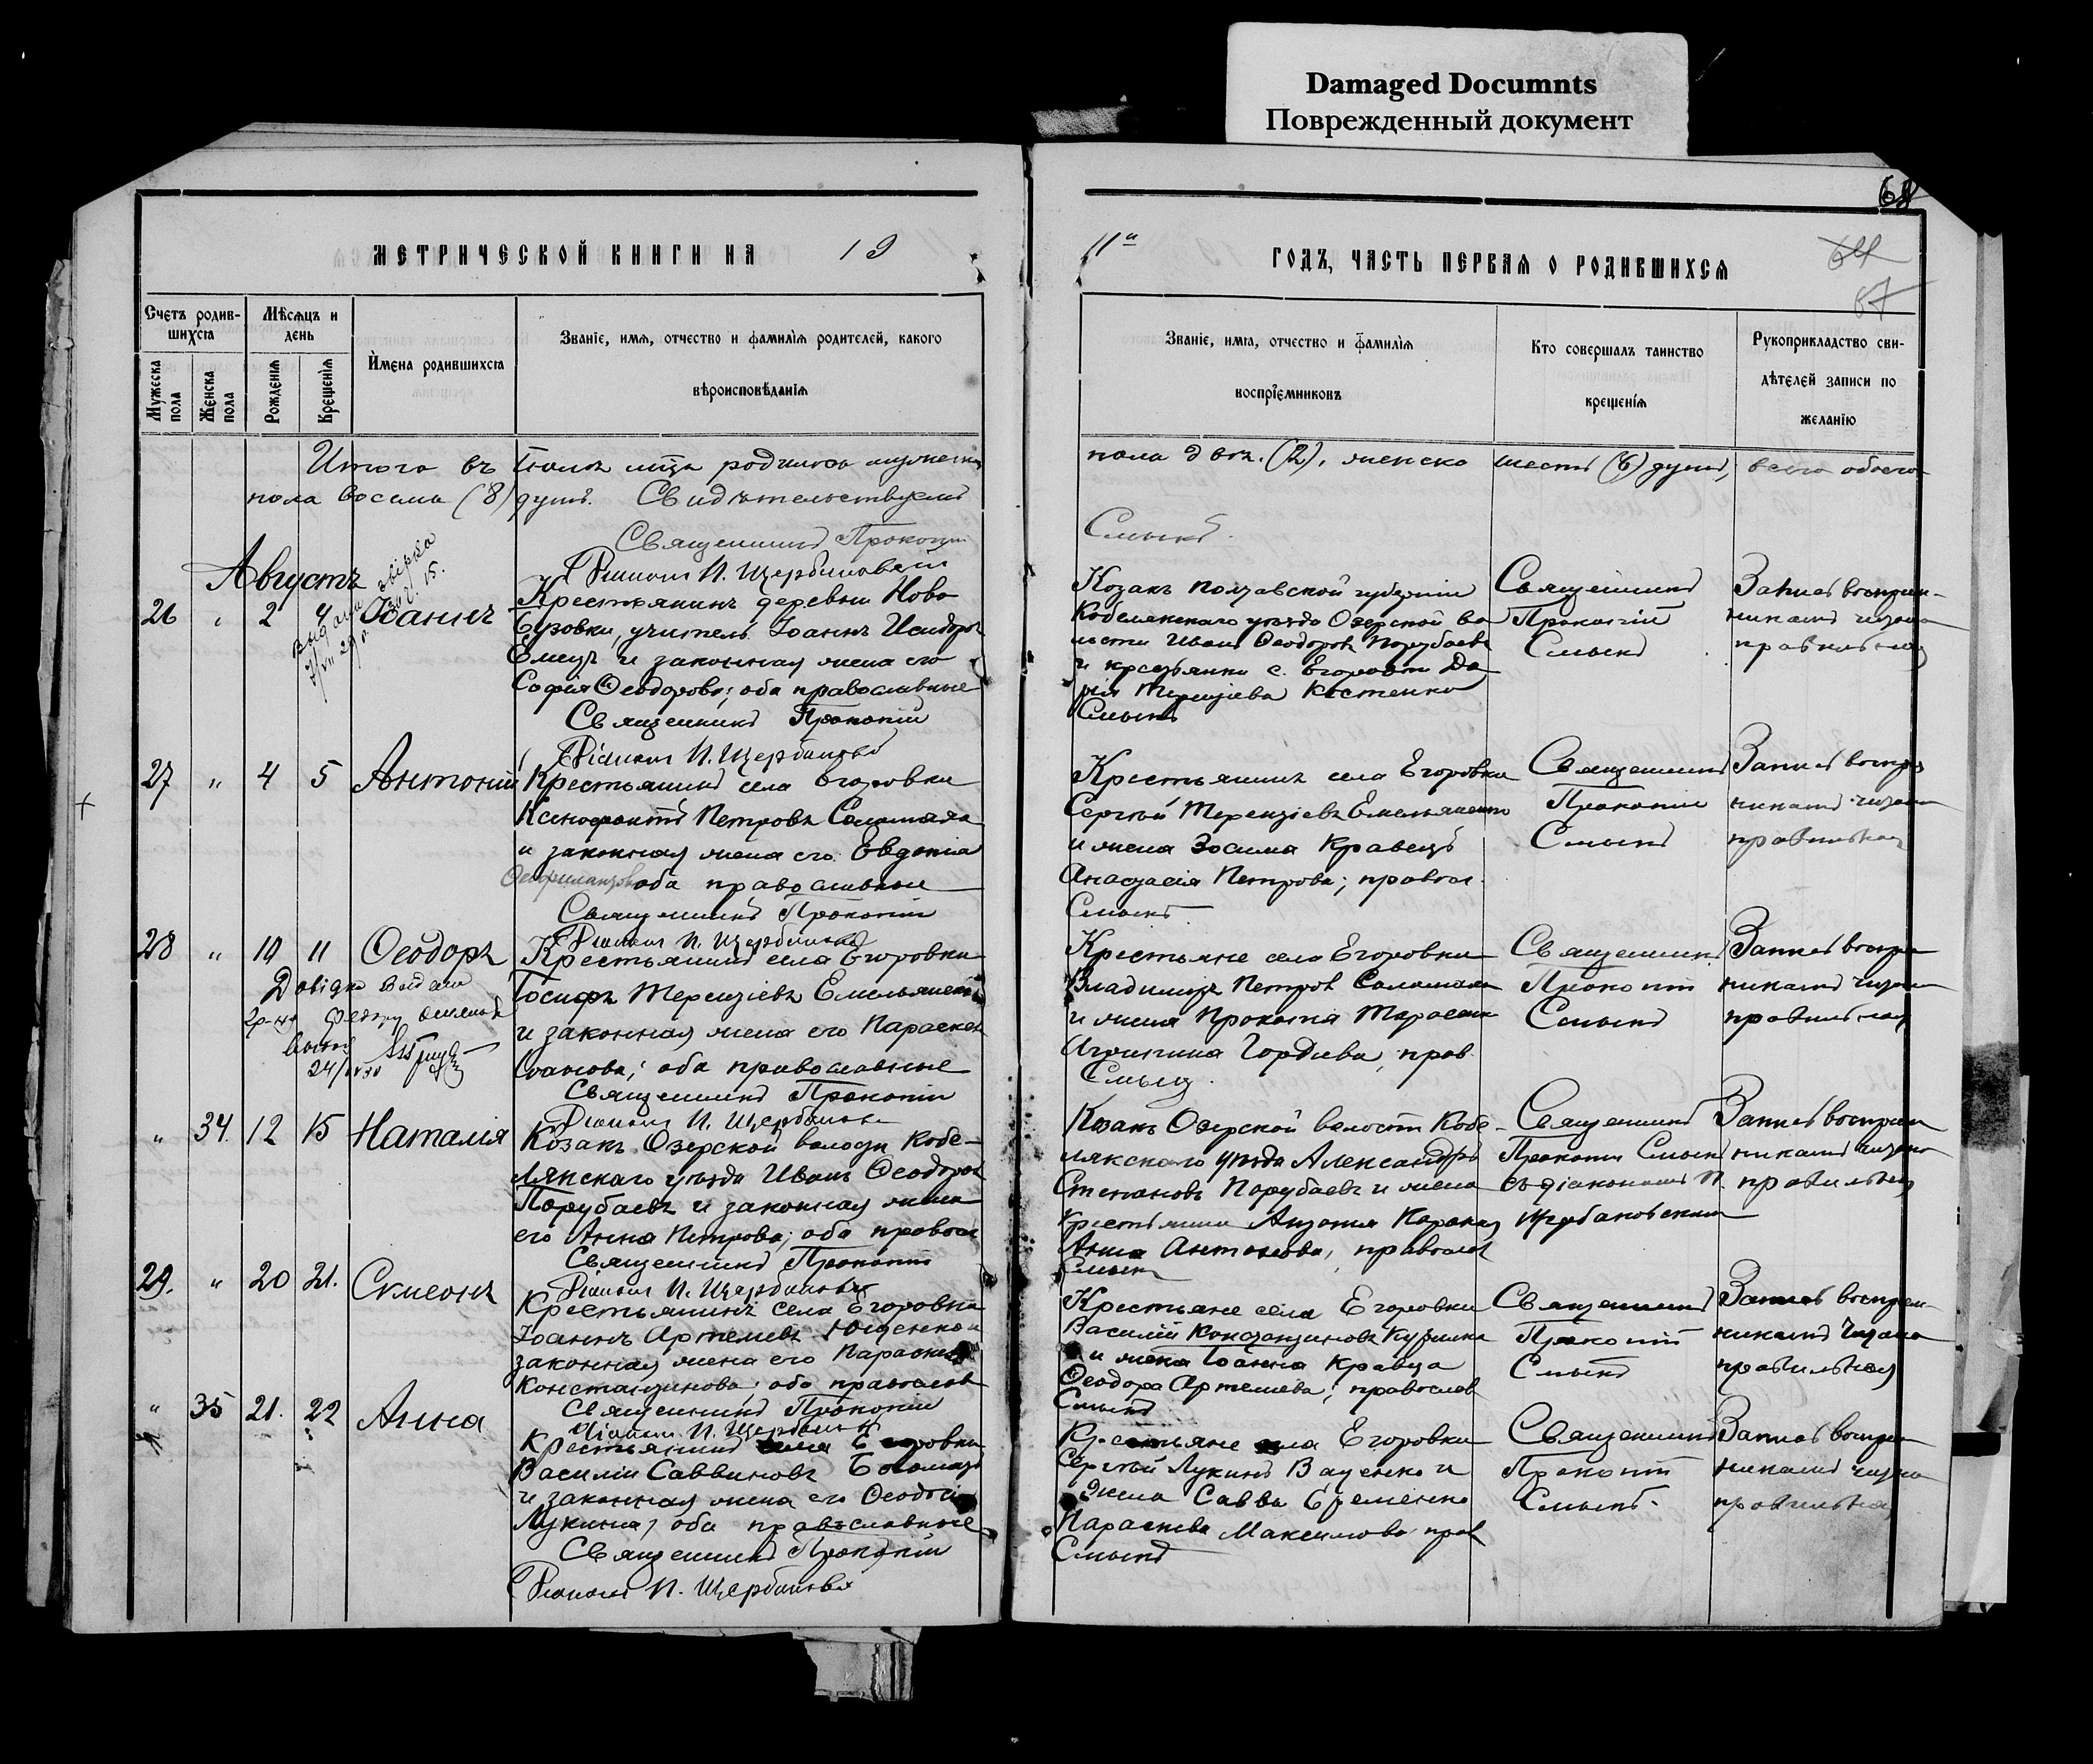 Damaged Documnts
Поврежденный документ
68
МЕТРИЧЕСКОЙ КНИГИ НА 19
11й
ГОДЪ, ЧАСТЬ ПЕРВАЯ О РОДИВШИХСЯ
64
67
Счетъ родив-
шихся
Мѣсяцъ и
день
Имена родившихся
Званіе, имя, отчество и фамилія родителей, какого
вѣроисповѣданія
Мужеска
пола
Женска
пола
Рожденія
Крещенія
Званіе, имя, отчество и фамилія
воспріемниковъ
Кто совершалъ таинство
крещенія
Рукоприкладство сви-
дѣтелей записи по
желанію
Итого въ родилось
пола двое (2), женско шесть (6) душъ, всего обоего
пола восемь (8) душъ. Свидѣтельствуемъ
Священникъ Прокопій
Смыкъ
Діаконъ П. Щербановскій
Августъ
26 " 2 4 Іоаннъ
Крестьянинъ деревни Ново
Бузовки, учитель Іоаннъ Исидоровъ
Емецъ и законная жена его
Софія Ѳеодорова; оба православные
Священникъ Прокопій
Діаконъ П. Щербановскій
Козакъ Полтавской губерніи
Кобелякскаго уѣзда Озерской во
лости Иванъ Ѳеодоровъ Порубаевъ
и крестьянка с. Егоровки Да
рія Терентіева Костенко
Смыкъ
Священникъ
Прокопій
Смыкъ
Запись воспріем-
никамъ читана
правильная
27 " 4 5 Антоній
Крестьянинъ села Егоровки
Ксенофонтъ Петровъ Саламаха
и законная жена его Евдокія
оба православные
Священникъ Прокопій
Діаконъ П. Щербановскій
Крестьянинъ села Егоровки
Сергѣй Терентіевъ Емельяненко
и жена Зосима Кравецъ
Анастасія Петрова; правосл.
Смыкъ
Священникъ
Прокопій
Смыкъ
Запись воспріем
никамъ читана
правильная
28 " 10 11 Ѳеодоръ
Довідка видана
Крестьянинъ села Егоровки
Іосифъ Терентіевъ Емельяненко
и законная жена его Параскева
Іоанова; оба православные
Священникъ Прокопій
Діаконъ П. Щербановскій
Крестьяне села Егоровки
Владимиръ Петровъ Саламаха
и жена Прокопія Тарасенко
Агрипина Гордіева, прав.
Смыкъ
Священникъ
Прокопій
Смыкъ
Запись воспріем
никамъ читана
правильная
" 34. 12 15 Наталія
Козакъ Озерской волости Кобе-
лякскаго уѣзда Иванъ Ѳеодоровъ
Порубаевъ и законная жена
его Анна Петрова; оба правосл
Священникъ Прокопій
Діаконъ П. Щербановскій
Козакъ Озерской волости Кобе-
лякскаго уѣзда Александръ
Степановъ Порубаевъ и жена
Анна Антонова, правосл
Смыкъ
Священникъ
Прокопій Смыкъ
съ діакономъ П.
Щербановскимъ
Запись воспріем
никамъ читана
правильная
29. " 20 21. Сѵмеонъ
Крестьянинъ села Егоровки
Іоаннъ Артемьевъ Ющенко и
законная жена его Параскева
Константинова; оба православ
Священникъ Прокопій
Діаконъ П. Щербановскій
Крестьяне села Егоровки
Василій Константиновъ
и жена Іоанна Кравца
Ѳеодора Артемьева; православ
Смыкъ
Священникъ
Прокопій
Смыкъ
Запись воспріем-
никамъ читана
правильная
" 35 21. 22 Анна
Крестьянинъ села Егоровки
Василій Саввиновъ Богомазъ
и законная жена его Ѳеодосія
Лукина; оба православные
Священникъ Прокопій
Діаконъ П. Щербановскій
Крестьяне села Егоровки
Сергѣй Лукинъ Ваценко и
жена Савва Еременко
Параскева Максимова прав
Смыкъ
Священникъ
Прокопій
Смыкъ.
Запись воспріем
никамъ читана
правильная